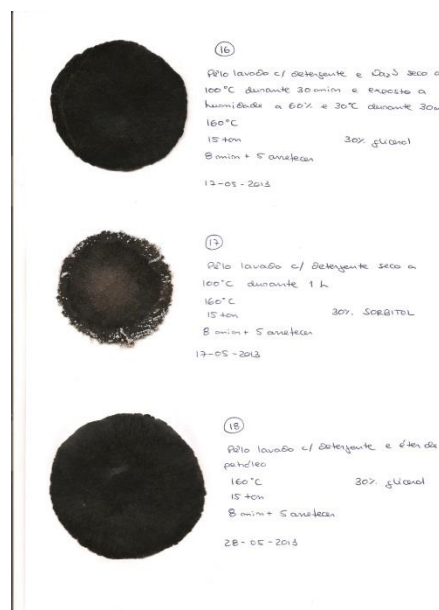 16
Pêlo lavado c/ detergente e Na2S seco a
100°C durante 30 min e exposto a
humidade a 60% e 30°C durante 30
160°C
15 ton 30% glicerol
8 min + 5 arrefecer
17-05-2013
17
Pêlo lavado c/ detergente seco a
100°C durante 1 h
160°C
15 ton 30% SORBITOL
8 min + 5 arrefecer
17-05-2013
18
Pêlo lavado c/ detergente e éter de
petróleo
160°C 30% glicerol
15 ton
8 min + 5 arrefecer
28-05-2013